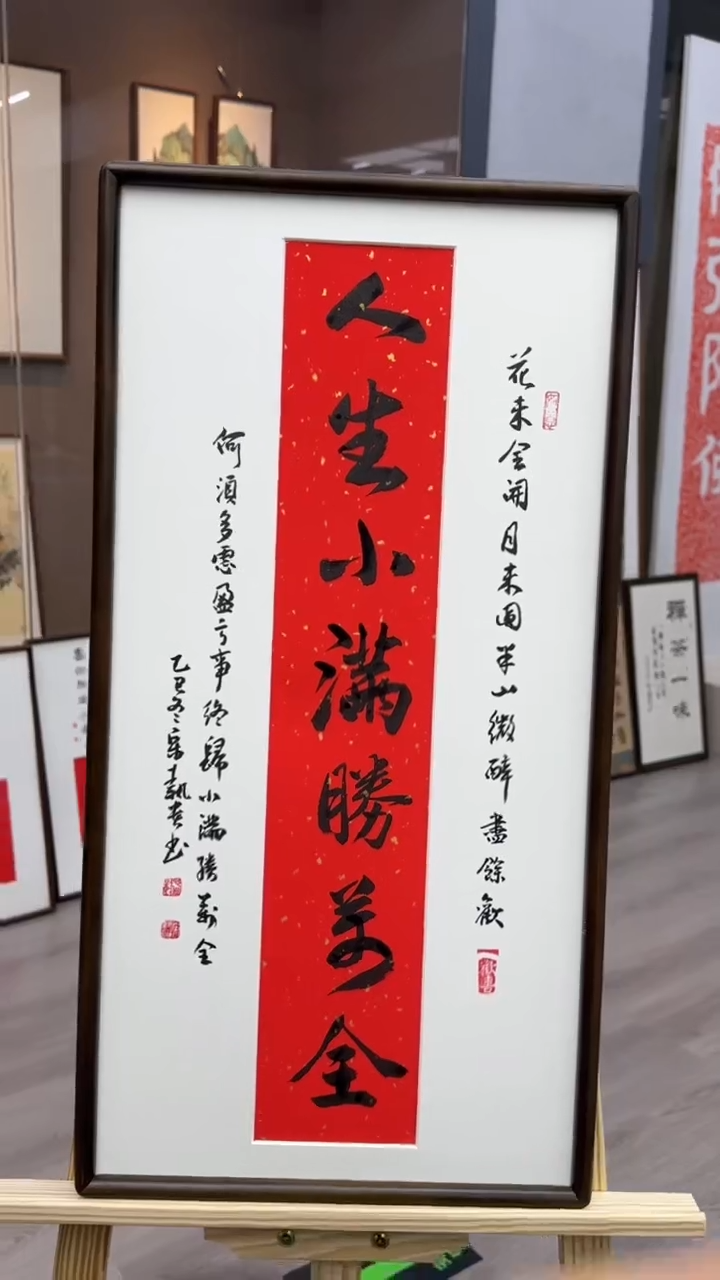 花未全開月未圓半山微醉盡餘歡
人生小滿勝萬全
何須多慮盈亏事終歸小滿勝萬全
乙巳冬
禪茶一味